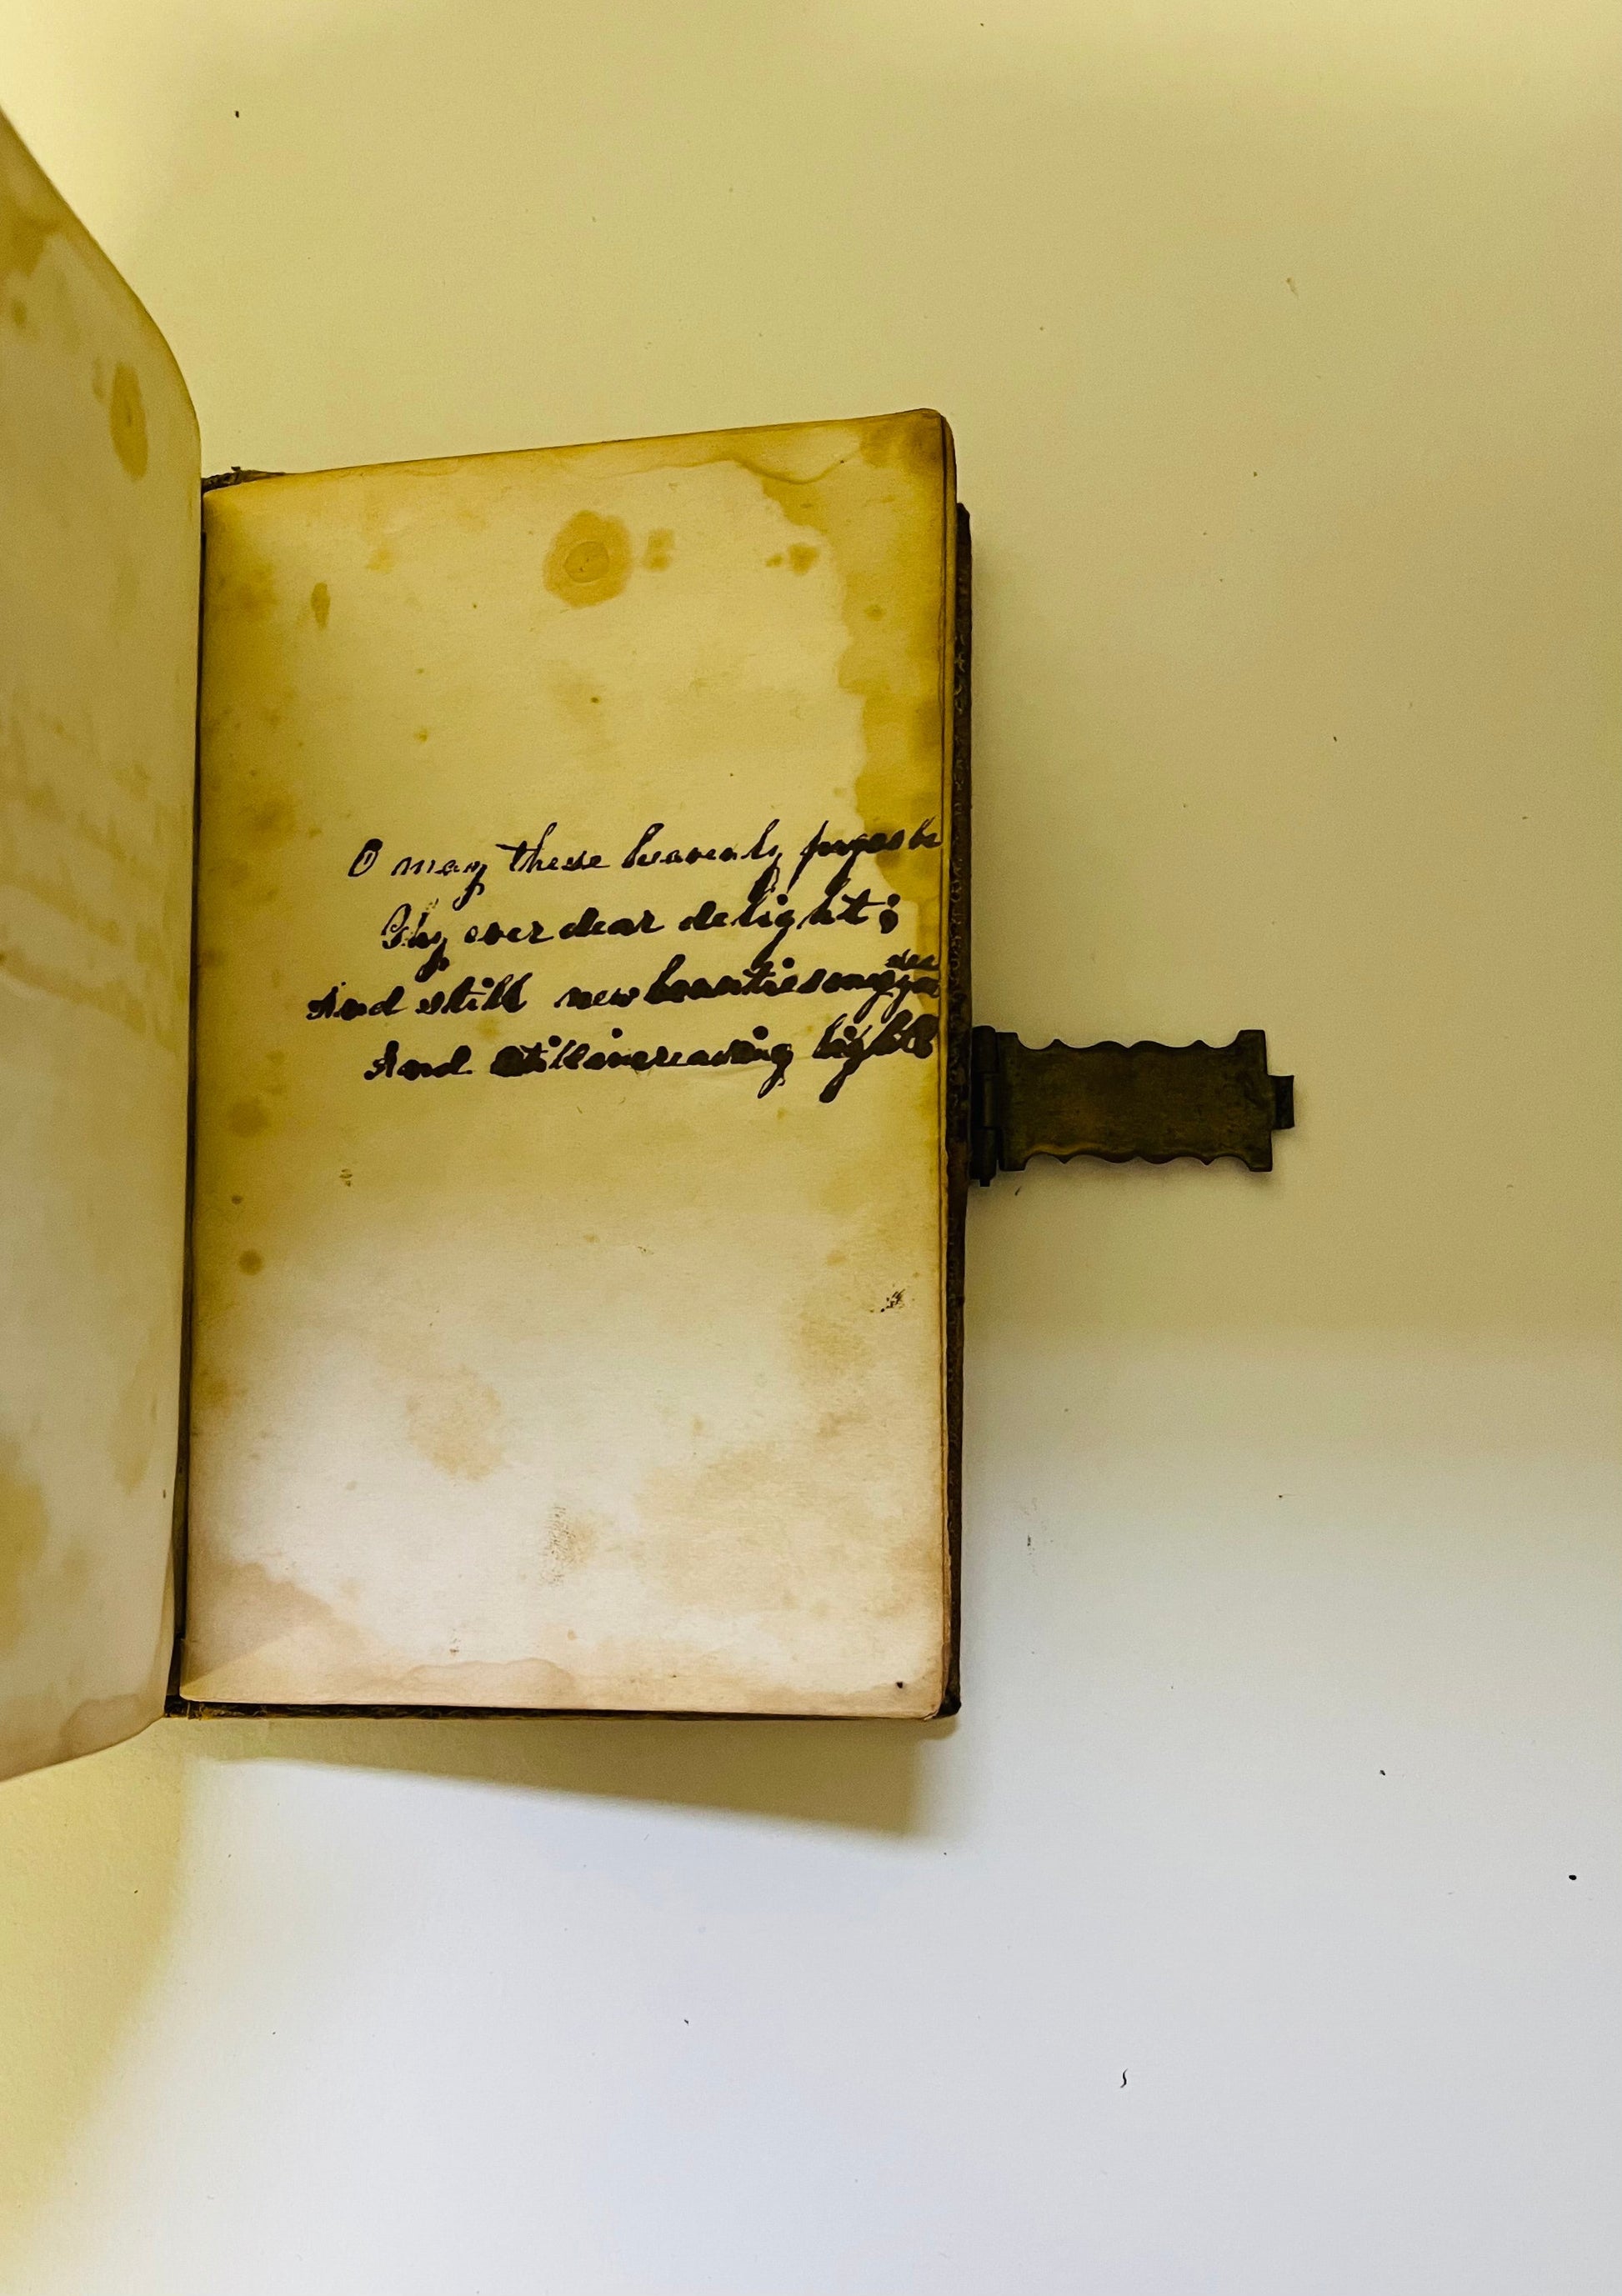 O may these heavenly pages be
Thy ever dear delight;
And still new beauties may you see
And still increasing light